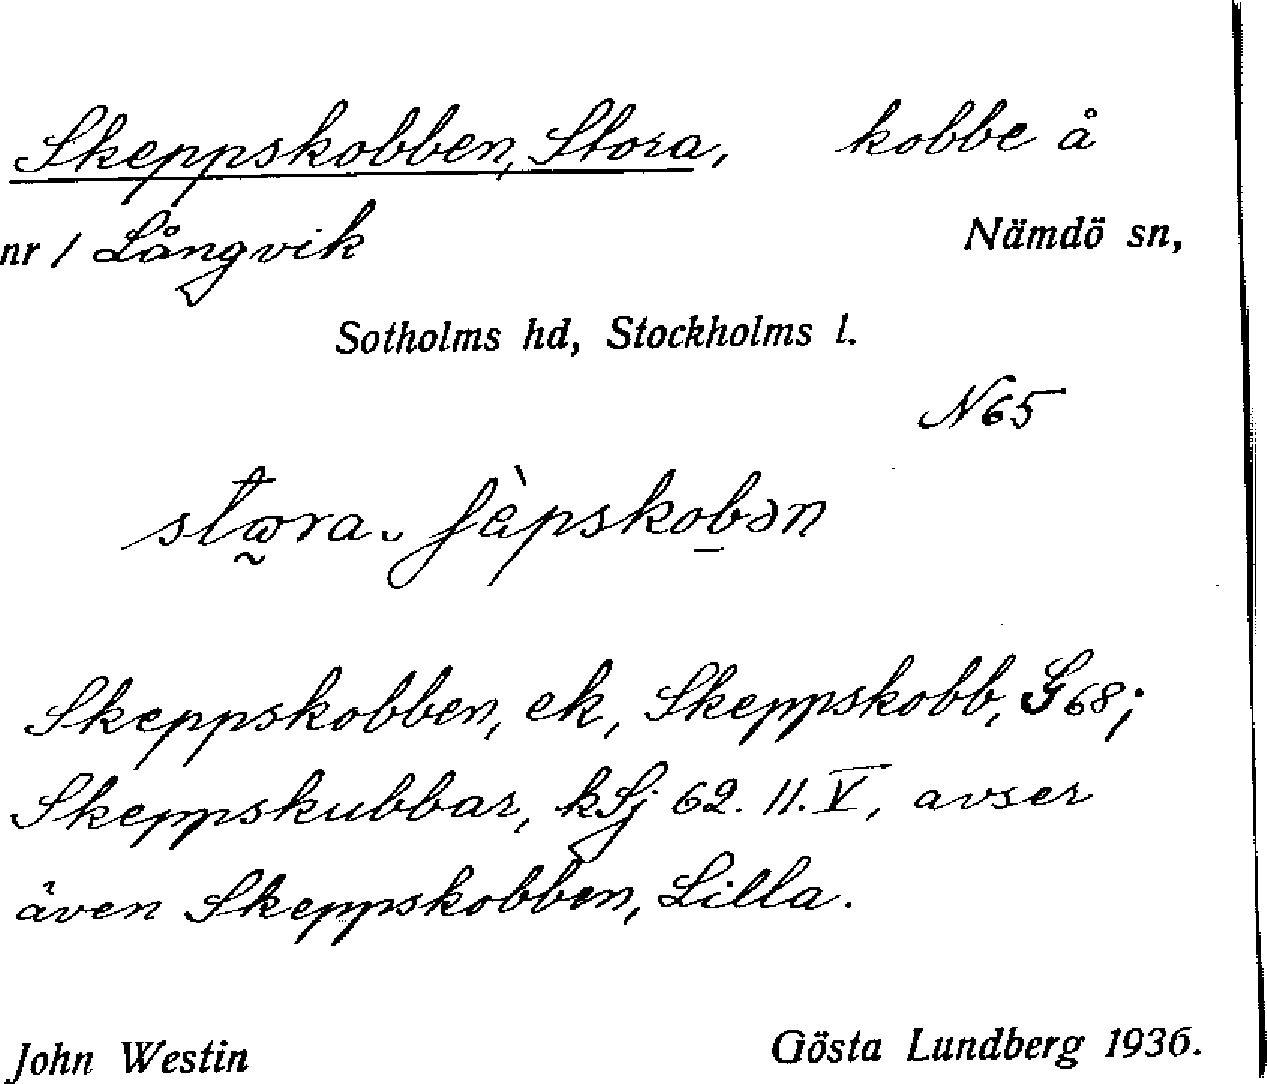 Skeppskobben, Stora, kobbe å
nr 1 Långvik Nämdö sn,
Sotholms hd, Stockholms l.
N65
Skeppskobben, ek, Skeppskobb, G68;
Skeppskubbar, kSj 62. 11. V, avser
även Skeppskobben, Lilla.
John Westin Gösta Lundberg 1936.